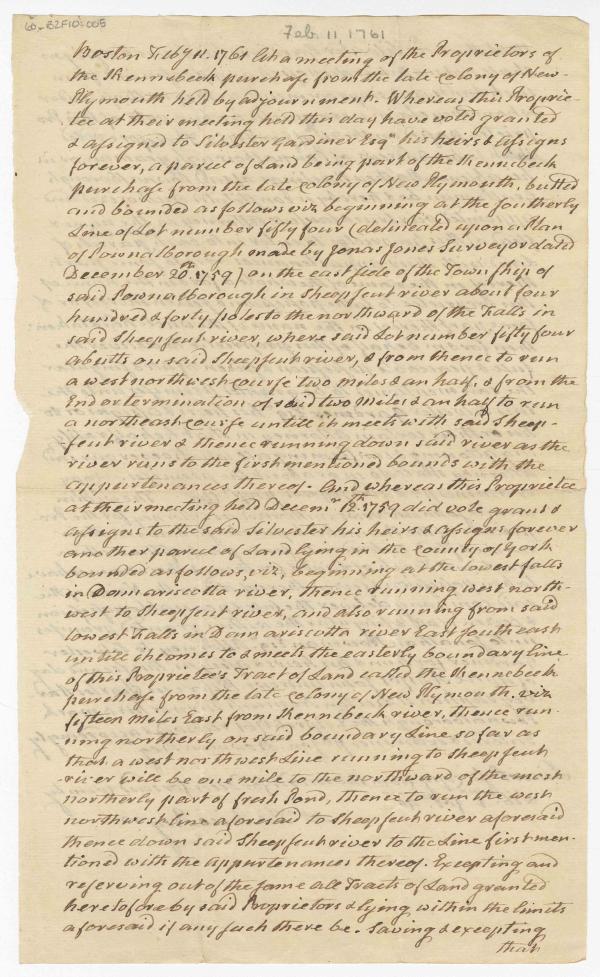 60-B2F10-005
Feb. 11, 1761
Boston Feby 11. 1761 At a meeting of the Proprietors of
the Kennebeck purchase from the late Colony of New-
Plymouth held by adjournment. Whereas this Proprie-
tee at their meeting held this day have voted granted
& assigned to Silvester Gardiner Esqr his heirs & assigns
forever, a parcel of Land being part of the Kennebeck
purchase from the late Colony of New Plymouth, butted
and bounded as follows viz beginning at the southerly
Line of Lot number fifty four (delineated upon a Plan
of Pownalborough made by Jonas Jones Surveyor dated
December 20th. 1759) on the east side of the Township of
said Pownalborough in Sheepscut river about four
hundred & forty poles to the northward of the Falls in
said Sheepscut river, where said Lot number fifty four
abutts on said Sheepscut river, & from thence to run
a west northwest course two miles & an half. & from the
End or termination of said two miles & an half to run
a northeast course untill it meets with said Sheep-
-scut river & thence running down said river as the
river runs to the first mentioned bounds with the
appurtenances thereof. And whereas this Proprietee
at their meeting held Decemr 12th. 1759 did vote grant &
assigns to the said Silvester his heirs & assigns forever
another parcel of Land lying in the County of York
bounded as follows, viz, beginning at the lowest falls
in Damariscotta river, thence running west north-
west to Sheepscut river, and also running from said
lowest Falls in Damariscotta river East southeast
untill it comes to & meets the easterly boundary line
of this Proprietee's Tract of Land called the Kennebeck
purchase from the late Colony of New Plymouth. viz
fifteen miles East from Kennebeck river, thence run-
ning northerly on said boundary Line so far as
that a west northwest Line running to Sheepscut
river will be one mile to the northward of the most
northerly part of fresh Pond, thence to run the west
northwest line aforesaid to Sheepscut river aforesaid
thence down said Sheepscut river to the Line first men-
tioned with the appurtenances thereof. Excepting and
reserving out of the same all Tracts of Land granted
heretofore by said Proprietors & lying within the limits
aforesaid if any such there be. Saving & excepting
that